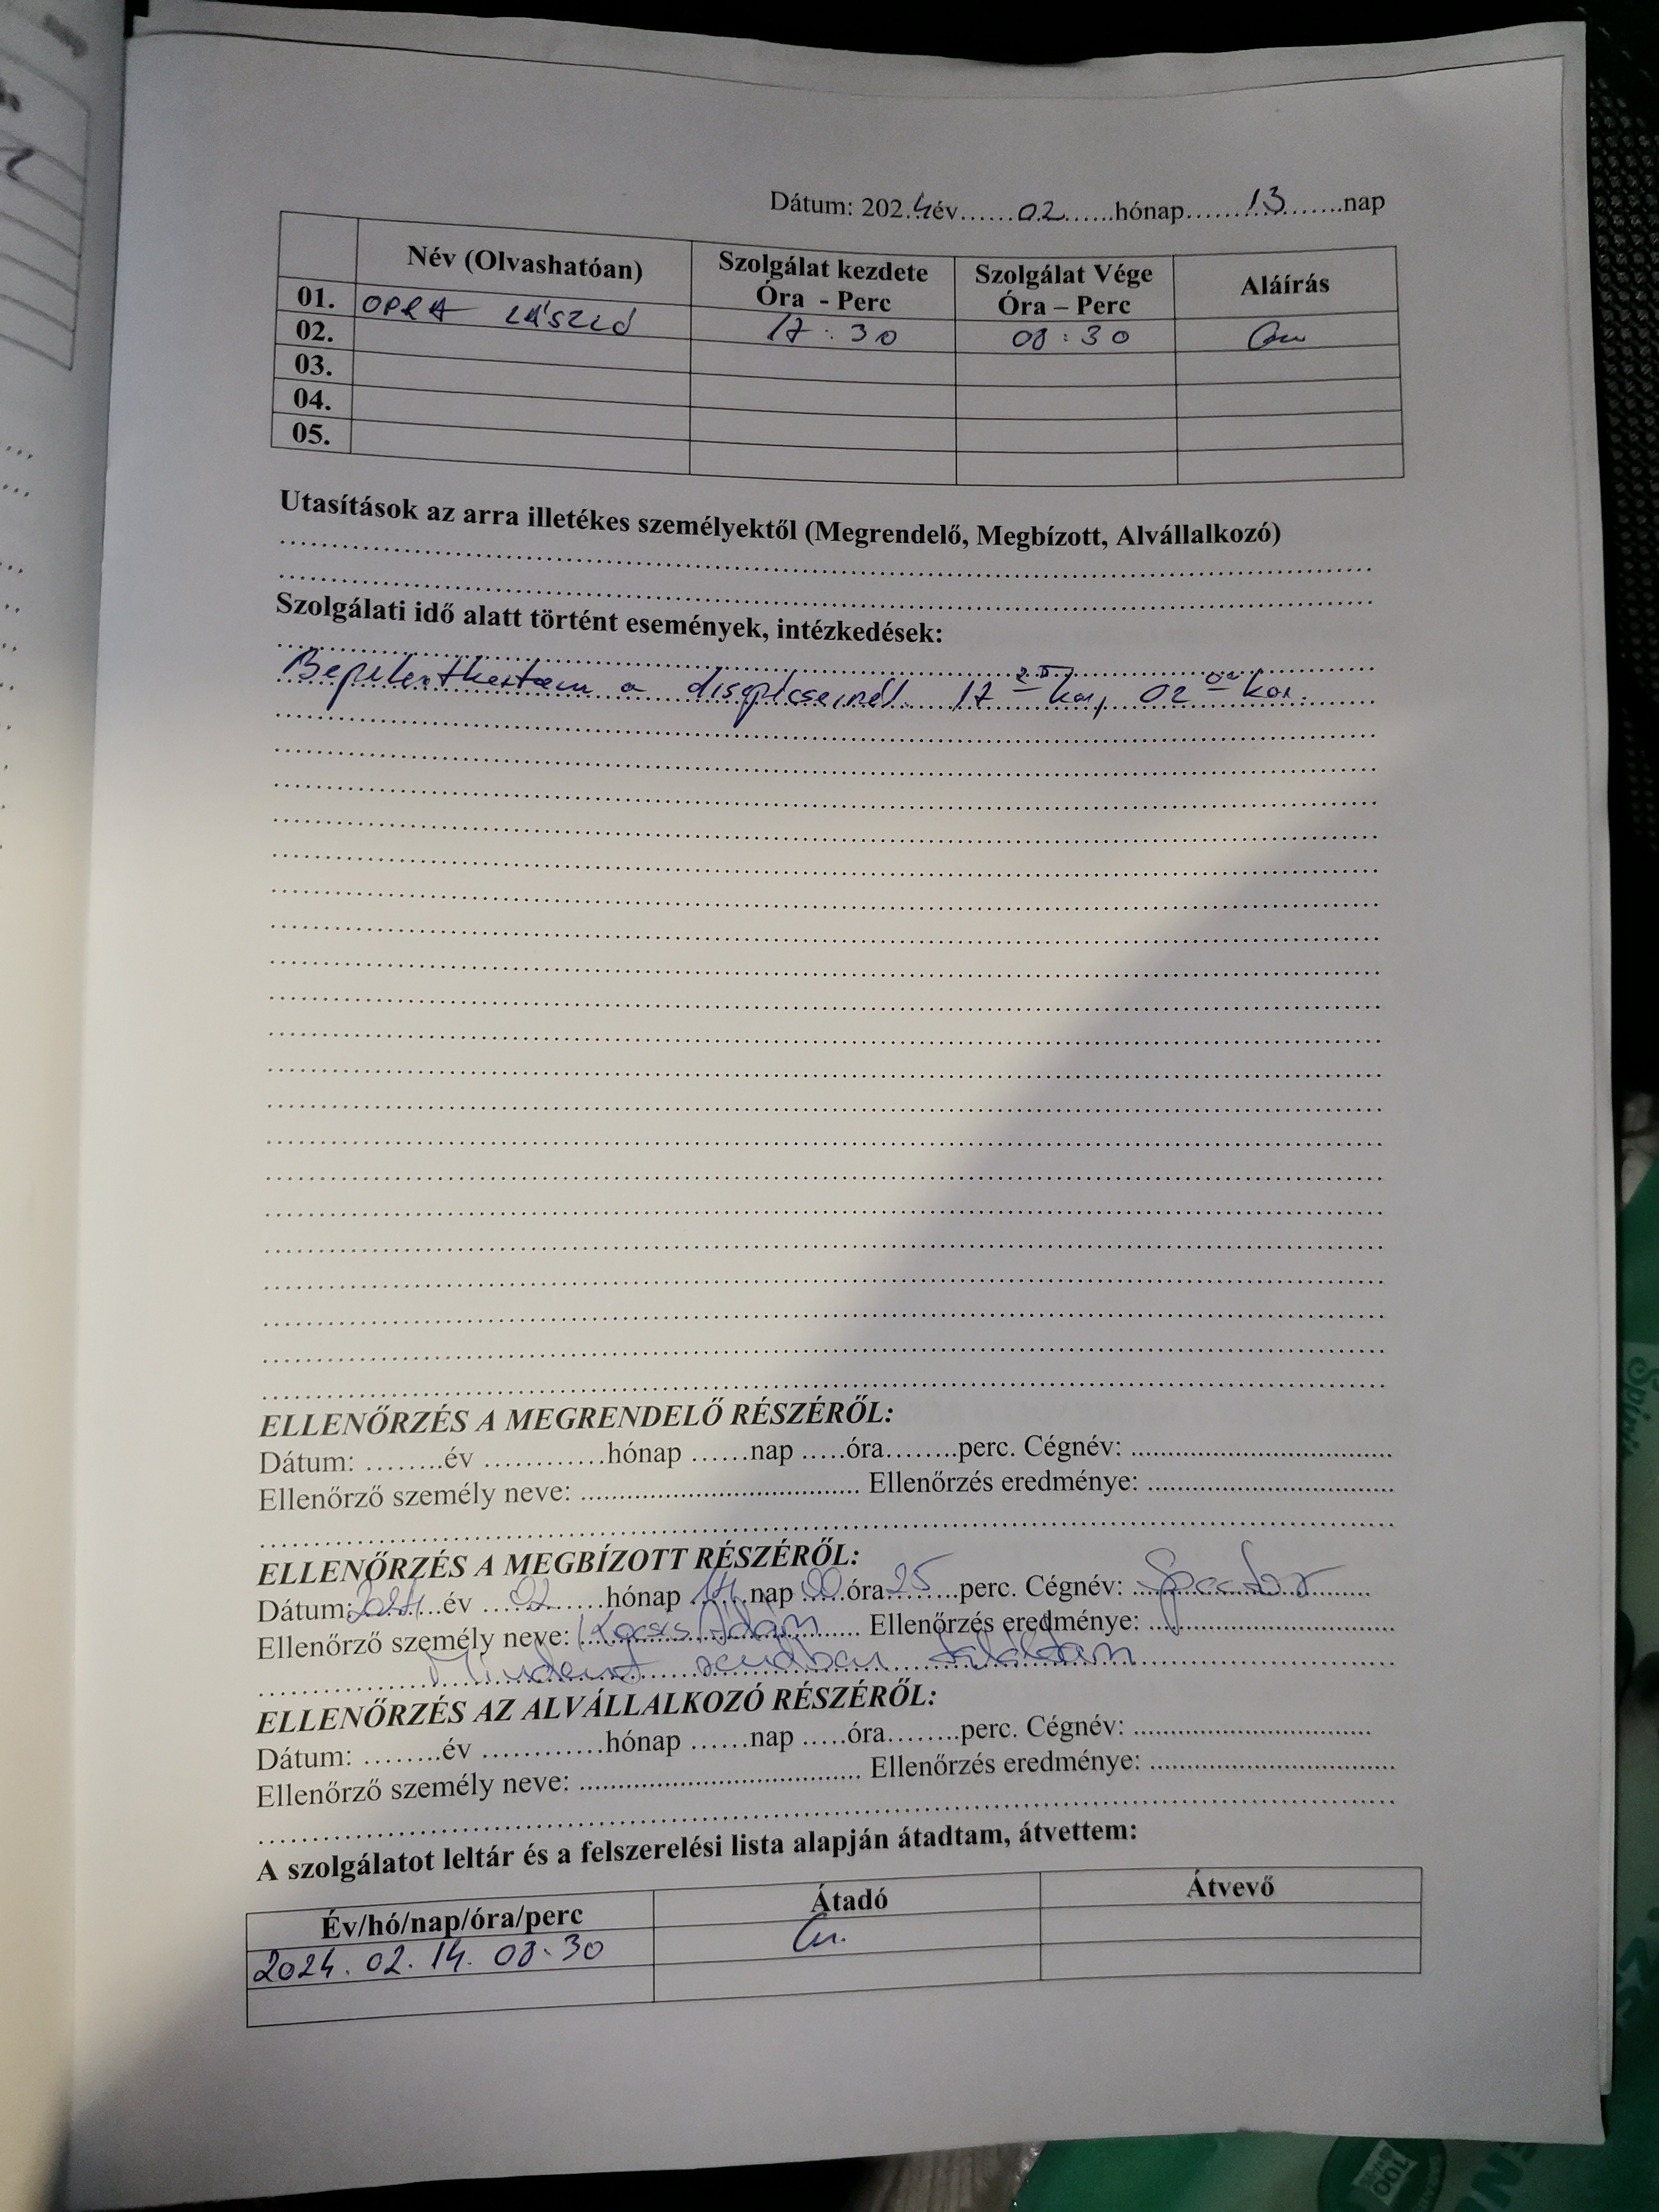 Dátum: 2024 év 02 hónap 13 nap
Név (Olvashatóan) Szolgálat kezdete Óra - Perc Szolgálat Vége Óra – Perc Aláírás
01. OPRA LÁSZLÓ 17:30 08:30
02.
03.
04.
05.
Utasítások az arra illetékes személyektől (Megrendelő, Megbízott, Alvállalkozó)
Szolgálati idő alatt történt események, intézkedések:
Bejelentkeztem a diszpécsernél 17 kor, 02 00 kor.
ELLENŐRZÉS A MEGRENDELŐ RÉSZÉRŐL:
Dátum: ........év ............hónap ......nap .....óra........perc. Cégnév: ..............................
Ellenőrző személy neve: .............................. Ellenőrzés eredménye: ..............................
ELLENŐRZÉS A MEGBÍZOTT RÉSZÉRŐL:
Dátum: 2024 év 02 hónap 14 nap 00 óra 25 perc. Cégnév:
Ellenőrző személy neve: Kocsis Ádám Ellenőrzés eredménye:
Mindent rendben találtam
ELLENŐRZÉS AZ ALVÁLLALKOZÓ RÉSZÉRŐL:
Dátum: ........év ............hónap ......nap .....óra........perc. Cégnév: ..............................
Ellenőrző személy neve: .............................. Ellenőrzés eredménye: ..............................
A szolgálatot leltár és a felszerelési lista alapján átadtam, átvettem:
Év/hó/nap/óra/perc Átadó Átvevő
2024. 02. 14. 08.30